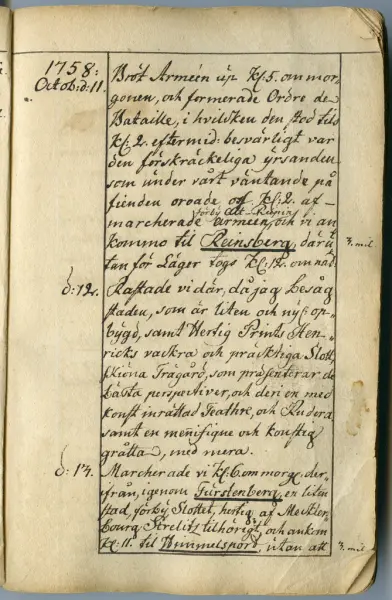 1758:
Octob: d: 11.
Bröt Arméen up Kl: 5. om mor-
gonen, och formerade Ordre de
Bataille, i hvilken den stod tils
Kl: 2. eftermid: besvärligt var
den förskräckeliga yrsanden
som under vårt väntande på
fienden oroade oss Kl: 2. af-
marcherade Arméen, och vi an
förby Alt-Rupin
kommo til Reinsberg, där u
tan för Läger togs Kl: 12. om nat
¾. mil
d: 12.
Rastade vi där, då jag besåg
staden, som är liten och ny op-
bygd, samt Hertig Prints Hen-
ricks vackra och präcktiga Slott
sköna Trägård, som præsenterar de
bästa perspectiver, och deri en med
konst inrättad Teathre, och
samt en menifique och konstig
grotta, med mera.
d: 14.
Marcherade vi Kl: 6. om morg: der-
ifrån, igenom Fürstenberg, en liten
stad, förby Slottet, hertig af Mecklen-
bourg Strelits tilhörigt, och ankom
Kl: 11. til Himmelsport, utan att
¾. mil